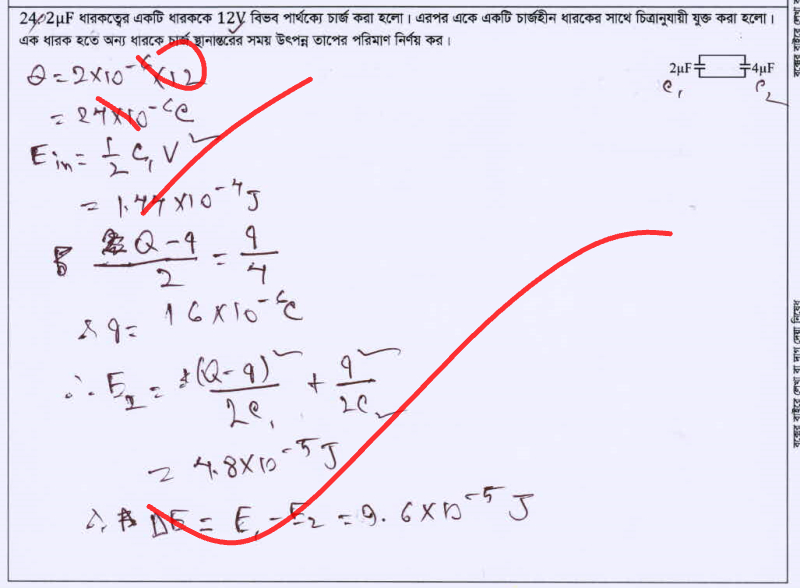 24. 2μF ধারকত্বের একটি ধারককে 12V বিভব পার্থক্যে চার্জ করা হলো। এরপর একে একটি চার্জহীন ধারকের সাথে চিত্রানুযায়ী যুক্ত করা হলো।
এক ধারক হতে অন্য ধারকে চার্জ স্থানান্তরের সময় উৎপন্ন তাপের পরিমাণ নির্ণয় কর।
2μF 4μF
C₁ C₂
Q = 2×10⁻⁶×12
= 24×10⁻⁶C
E_in = 1/2 C₁V²
= 1.44×10⁻⁴J
(Q-q)/2 = q/4
q = 16×10⁻⁶C
∴ E₂ = (Q-q)²/2C₁ + q²/2C₂
= 4.8×10⁻⁵J
∴ ΔE = E₁-E₂ = 9.6×10⁻⁵ J